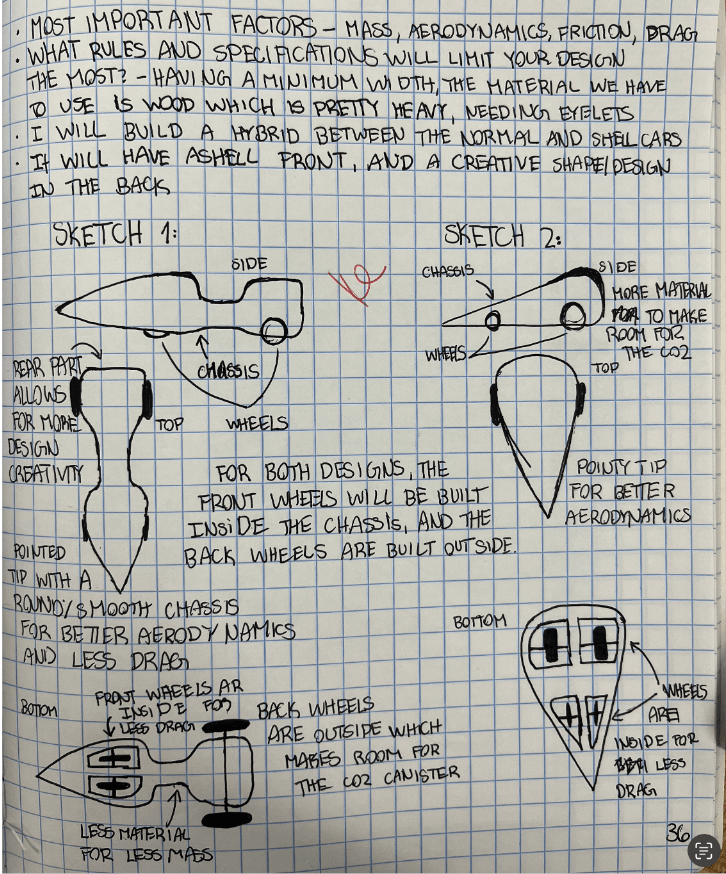 • MOST IMPORTANT FACTORS – MASS, AERODYNAMICS, FRICTION, DRAG
• WHAT RULES AND SPECIFICATIONS WILL LIMIT YOUR DESIGN
THE MOST? – HAVING A MINIMUM WIDTH, THE MATERIAL WE HAVE
TO USE IS WOOD WHICH IS PRETTY HEAVY, NEEDING EYELETS
• I WILL BUILD A HYBRID BETWEEN THE NORMAL AND SHELL CARS
• It WILL HAVE A SHELL FRONT, AND A CREATIVE SHAPE/DESIGN
IN THE BACK
SKETCH 1:
SIDE
CHASSIS
WHEELS
REAR PART
ALLOWS
FOR MORE
DESIGN
CREATIVITY
TOP
POINTED
TIP WITH A
ROUND/SMOOTH CHASSIS
FOR BETTER AERODYNAMICS
AND LESS DRAG
SKETCH 2:
CHASSIS
SIDE
MORE MATERIAL
TO MAKE
ROOM FOR
THE CO2
WHEELS
TOP
POINTY TIP
FOR BETTER
AERODYNAMICS
FOR BOTH DESIGNS, THE
FRONT WHEELS WILL BE BUILT
INSIDE THE CHASSIS, AND THE
BACK WHEELS ARE BUILT OUTSIDE.
BOTTOM
FRONT WHEELS AR
INSIDE FOR
LESS DRAG
BACK WHEELS
ARE OUTSIDE WHICH
MAKES ROOM FOR
THE CO2 CANISTER
LESS MATERIAL
FOR LESS MASS
BOTTOM
WHEELS
ARE
INSIDE FOR
LESS
DRAG
36